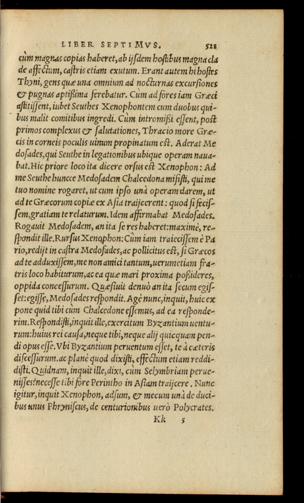 LIBER SEPTIMVS. 521
cùm magnas copias haberet, ab ijsdem hostibus magna cla
de affectum, castris etiam exutum. Erant autem hi hostes
Thyni, gens quæ una omnium ad nocturnas excursiones
& pugnas aptissima ferebatur. Cùm ad fores iam Græci
astitissent, iubet Seuthes Xenophontem cum duobus qui-
bus malit comitibus ingredi. Cùm intromissi essent, post
primos complexus & salutationes, Thracio more Græ-
cis in corneis poculis uinum propinatum est. Aderat Me
dosades, qui Seuthæ in legationibus ubique operam naua-
bat. Hic priore loco ita dicere orsus est Xenophon: Ad
me Seuthe huncce Medosadem Chalcedona misisti, qui me
tuo nomine rogaret, ut cum ipso unà operam darem, ut
ad te Græcorum copiæ ex Asia traijcerent: quod si fecis-
sem, gratiam te relaturum. Idem affirmabat Medosades.
Rogauit Medosadem, an ita se res haberet: maximè, re-
spondit ille. Rursus Xenophon: Cùm iam traiecissem è Pa
rio, redijt in castra Medosades, ac pollicitus est, si Græcos
ad te adduxissem, me non amici tantum, uerumetiam fra-
tris loco habiturum, ac ea quæ mari proxima possideres,
oppida concessurum. Quæsiuit denuò an ita secum egis-
set: egisse, Medosades respondit. Age nunc, inquit, huic ex
pone quid tibi cùm Chalcedone essemus, ad ea responde-
rim. Respondisti, inquit ille, exercitum Byzantium uentu-
rum: huius rei causa, neque tibi, neque alij quicquam pen-
di opus esse. Vbi Byzantium peruentum esset, te à cæteris
discessurum. ac planè quod dixisti, effectum etiam reddi-
disti. Quidnam, inquit ille, dixi, cùm Selymbriam perue-
nisses? necesse tibi fore Perintho in Asiam traijcere. Nunc
igitur, inquit Xenophon, adsum, & mecum unà de duci-
bus unus Phryniscus, de centurionibus uerò Polycrates.
Kk 5